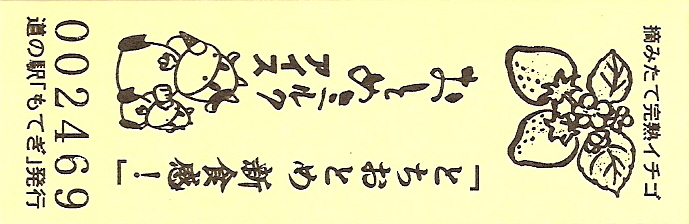 摘みたて完熟イチゴ
「とちおとめ 新食感!」
おとめミルク
アイス
002469
道の駅「もてぎ」発行